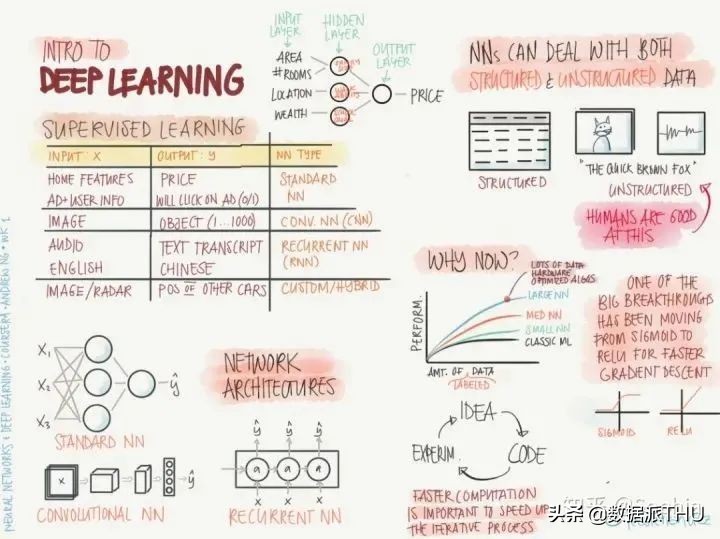 INTRO TO
DEEP LEARNING
INPUT LAYER
HIDDEN LAYER
OUTPUT LAYER
AREA
# ROOMS
LOCATION
WEALTH
PRICE
SUPERVISED LEARNING
INPUT: X OUTPUT: y NN TYPE
HOME FEATURES PRICE STANDARD
AD+USER INFO WILL CLICK ON AD (0/1) NN
IMAGE OBJECT (1...1000) CONV. NN (CNN)
AUDIO TEXT TRANSCRIPT RECURRENT NN
ENGLISH CHINESE (RNN)
IMAGE/RADAR POS OF OTHER CARS CUSTOM/HYBRID
NNs CAN DEAL WITH BOTH
STRUCTURED & UNSTRUCTURED DATA
STRUCTURED
"THE QUICK BROWN FOX"
UNSTRUCTURED
HUMANS ARE GOOD
AT THIS
WHY NOW?
PERFORM.
LOTS OF DATA
HARDWARE
OPTIMIZED ALGOS
LARGE NN
MED NN
SMALL NN
CLASSIC ML
AMT. OF DATA
LABELED
ONE OF THE
BIG BREAKTHROUGHS
HAS BEEN MOVING
FROM SIGMOID
TO RELU FOR FASTER
GRADIENT DESCENT
SIGMOID
RELU
X₁
X₂
X₃
ŷ
STANDARD NN
NETWORK
ARCHITECTURES
X
ŷ
CONVOLUTIONAL NN
ŷ ŷ ŷ
a a a
x x x
RECURRENT NN
IDEA
CODE
EXPERIM.
FASTER COMPUTATION
IS IMPORTANT TO SPEED UP
THE ITERATIVE PROCESS
NEURAL NETWORKS & DEEP LEARNING · COURSERA · ANDREW NG · WK 1
知乎
头条 @数据派THU